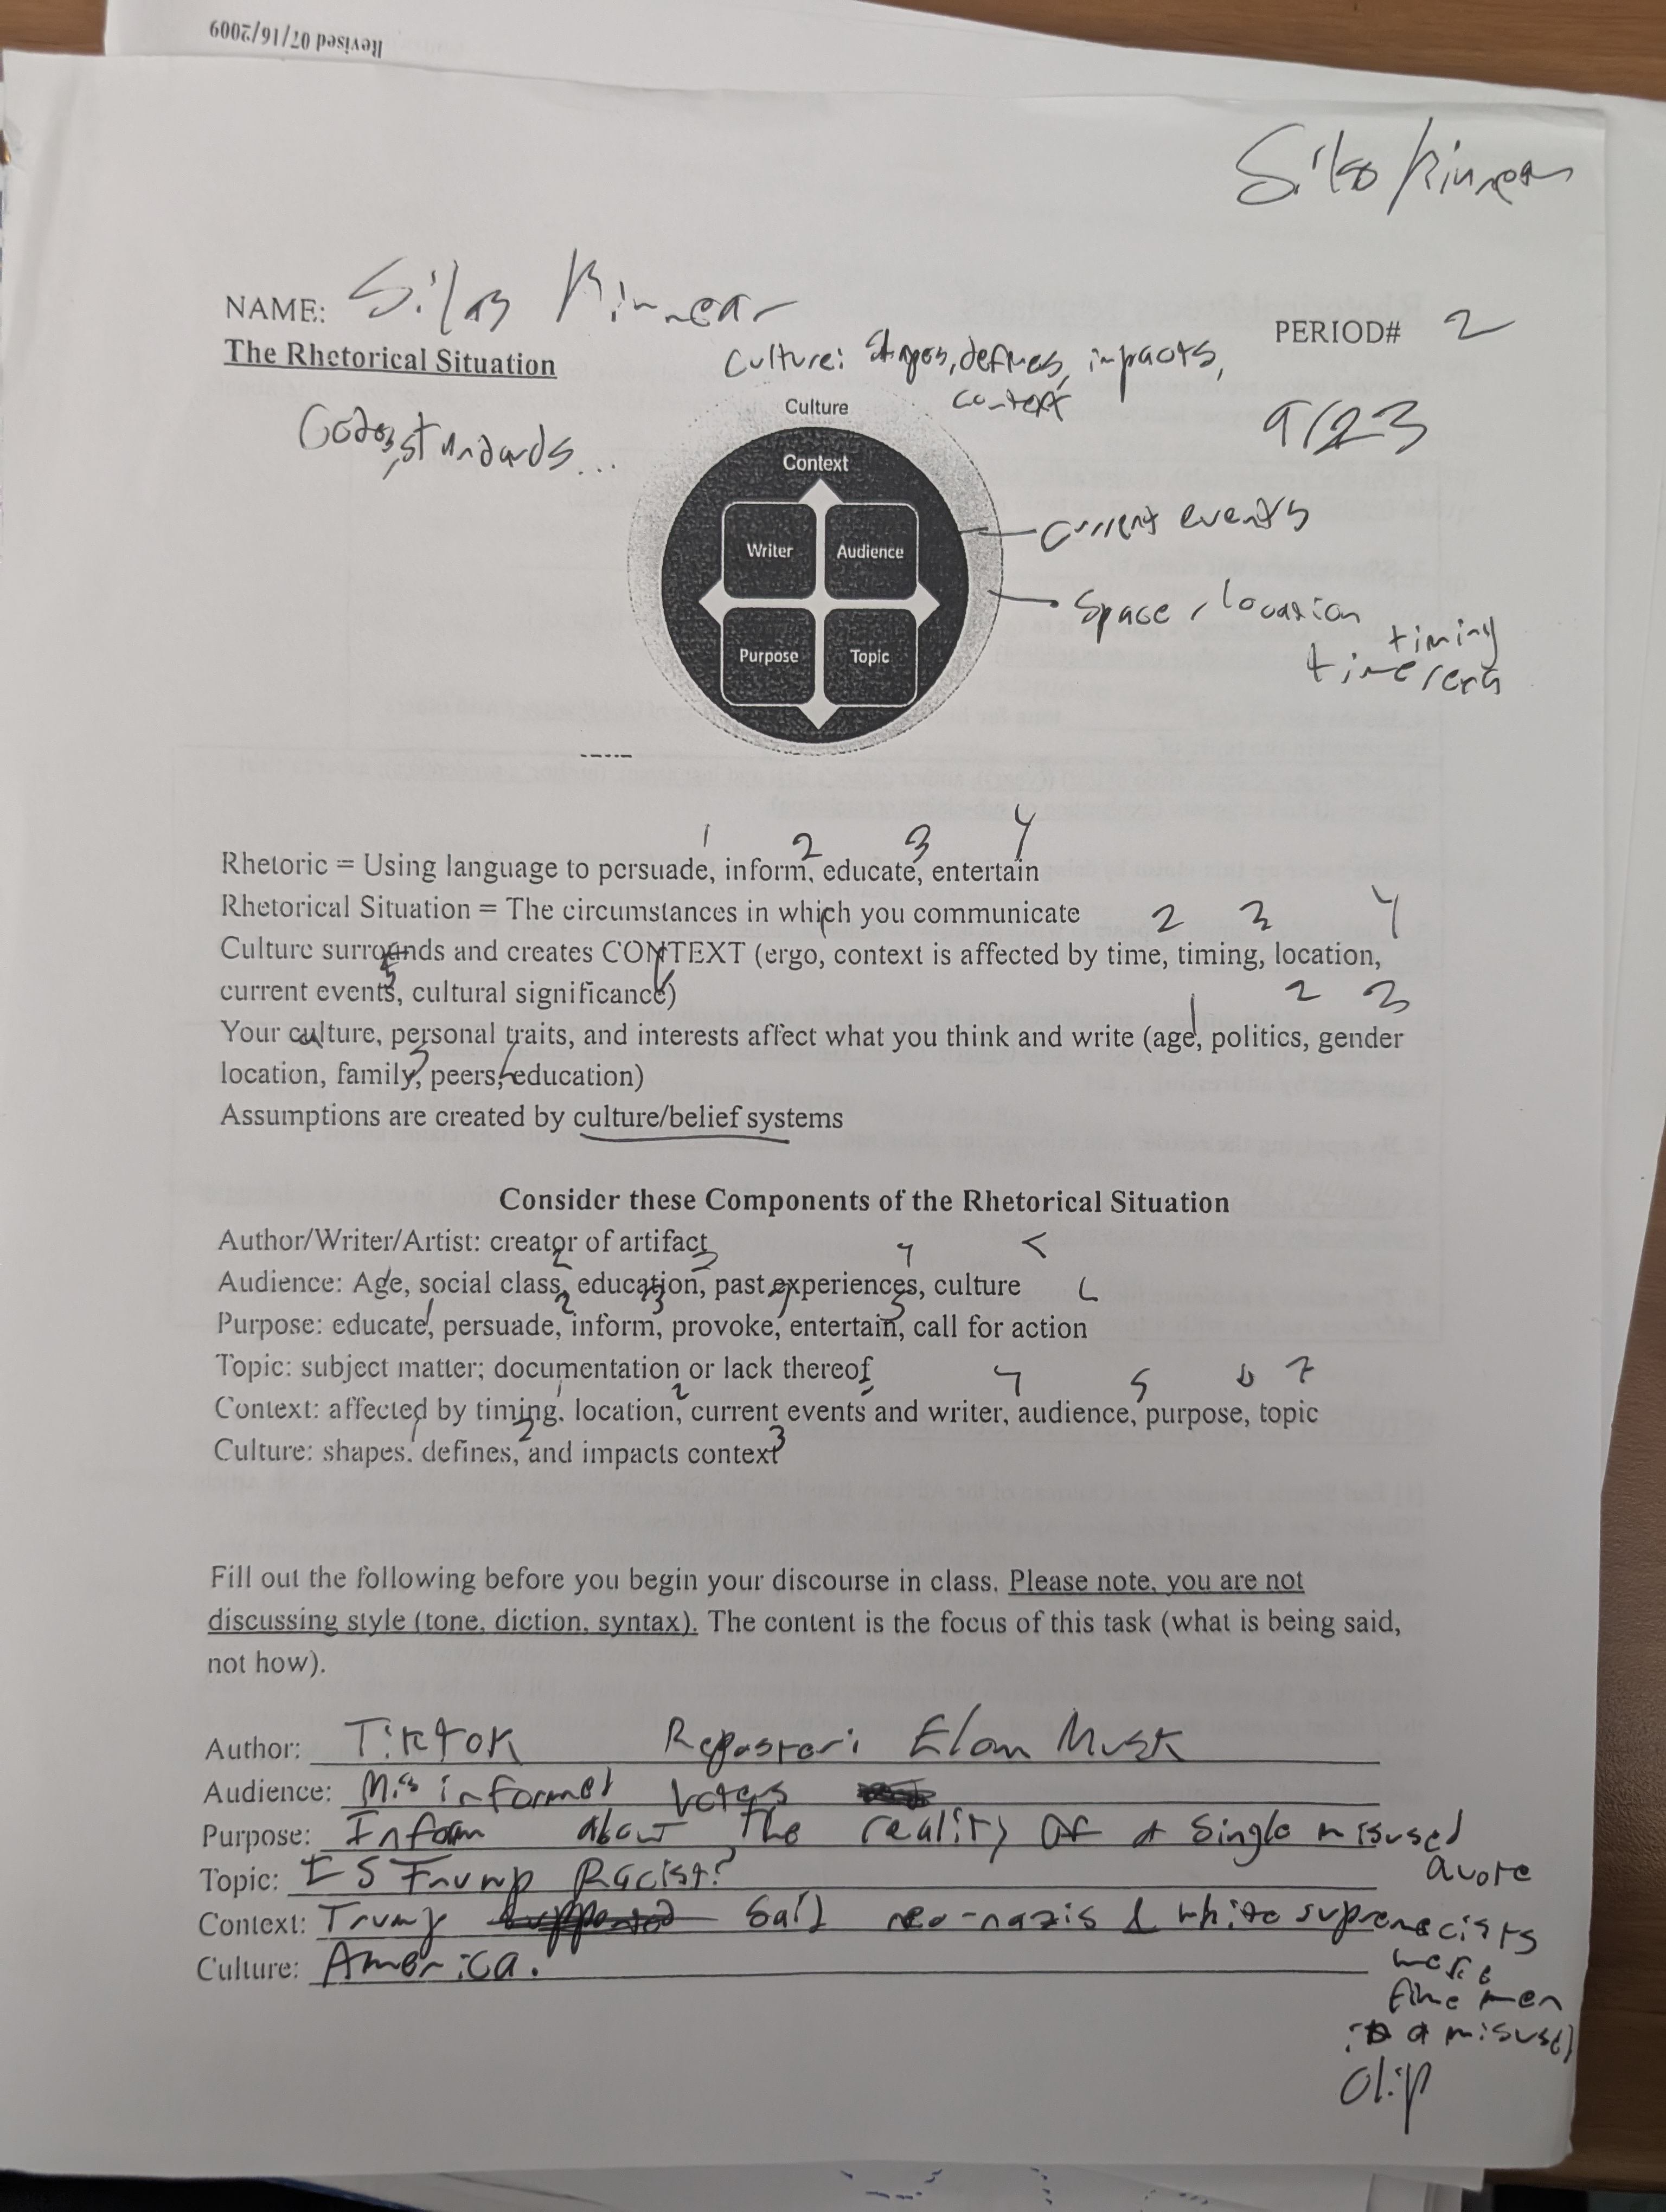 Revised 07/16/2009
Silas Kinnear
NAME: Silas Kinnear
PERIOD# 2
The Rhetorical Situation
Culture: Shapes, defines, impacts,
context
9/23
Codes, standards...
Culture
Context
Writer Audience
Purpose Topic
Current events
Space, location
timing
time/era
1 2 3 4
Rhetoric = Using language to persuade, inform, educate, entertain
Rhetorical Situation = The circumstances in which you communicate
2 3 4
Culture surrounds and creates CONTEXT (ergo, context is affected by time, timing, location,
current events, cultural significance)
1 2 3
Your culture, personal traits, and interests affect what you think and write (age, politics, gender
location, family, peers, education)
Assumptions are created by culture/belief systems
Consider these Components of the Rhetorical Situation
Author/Writer/Artist: creator of artifact
Audience: Age, social class, education, past experiences, culture
Purpose: educate, persuade, inform, provoke, entertain, call for action
Topic: subject matter; documentation or lack thereof
Context: affected by timing, location, current events and writer, audience, purpose, topic
Culture: shapes, defines, and impacts context
Fill out the following before you begin your discourse in class. Please note, you are not
discussing style (tone, diction, syntax). The content is the focus of this task (what is being said,
not how).
Author: TikTok Reposter: Elon Musk
Audience: Misinformed voters
Purpose: Inform about the reality of a single misused
quote
Topic: Is Trump Racist?
Context: Trump said neo-nazis & white supremacists
were
fine men
is a misused
clip
Culture: America.